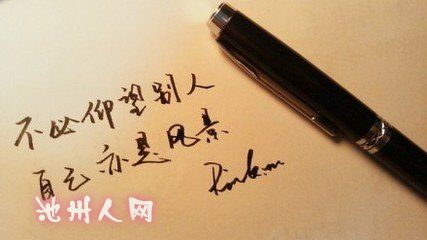 不必仰望别人
自己亦是风景
池州人网